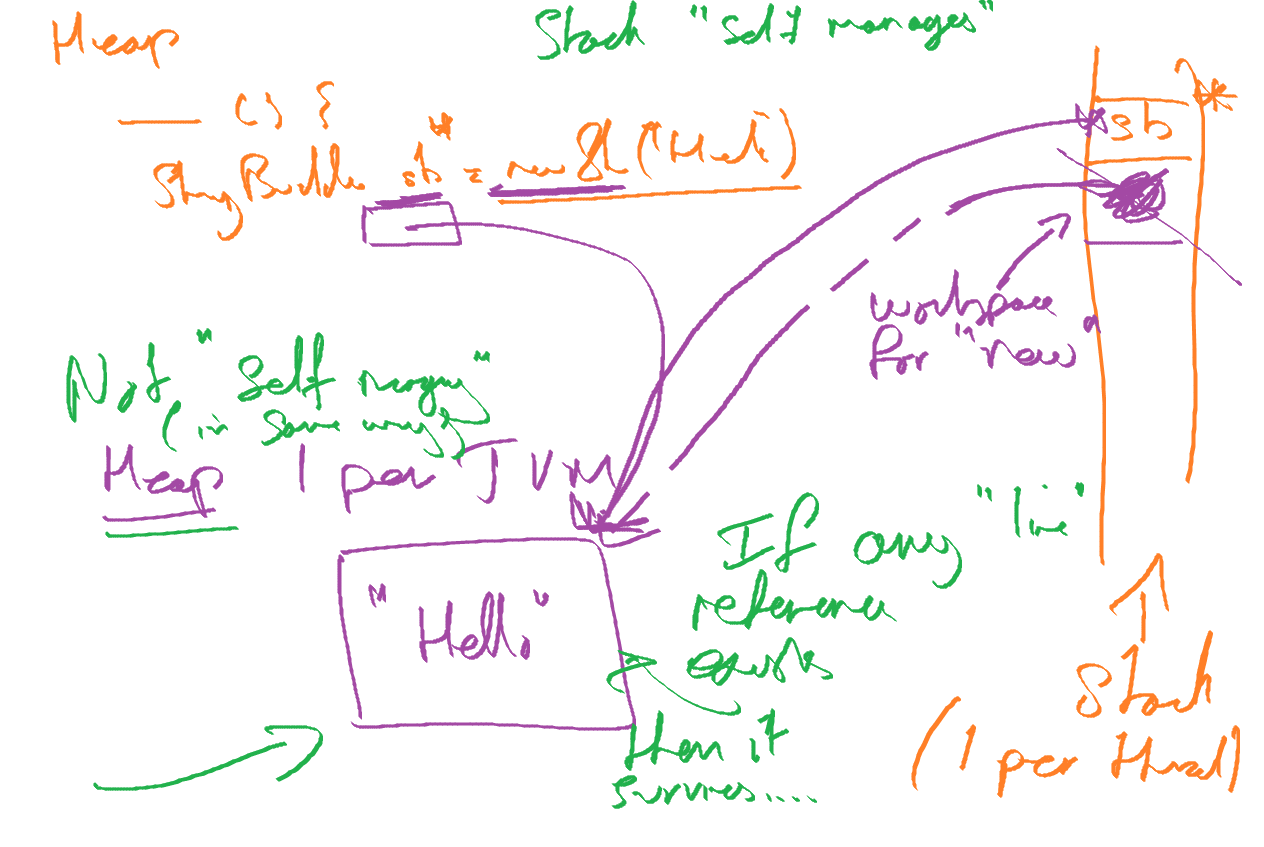 Heap
Stack "self manages"
___ () { 
StringBuilder sb = new SB("Hello")
sb
workspace
for "new"
Not "self manages"
(in same way)
Heap 1 per JVM
"Hello"
If any "live"
reference
exists
then it
survives....
Stack
(1 per thread)